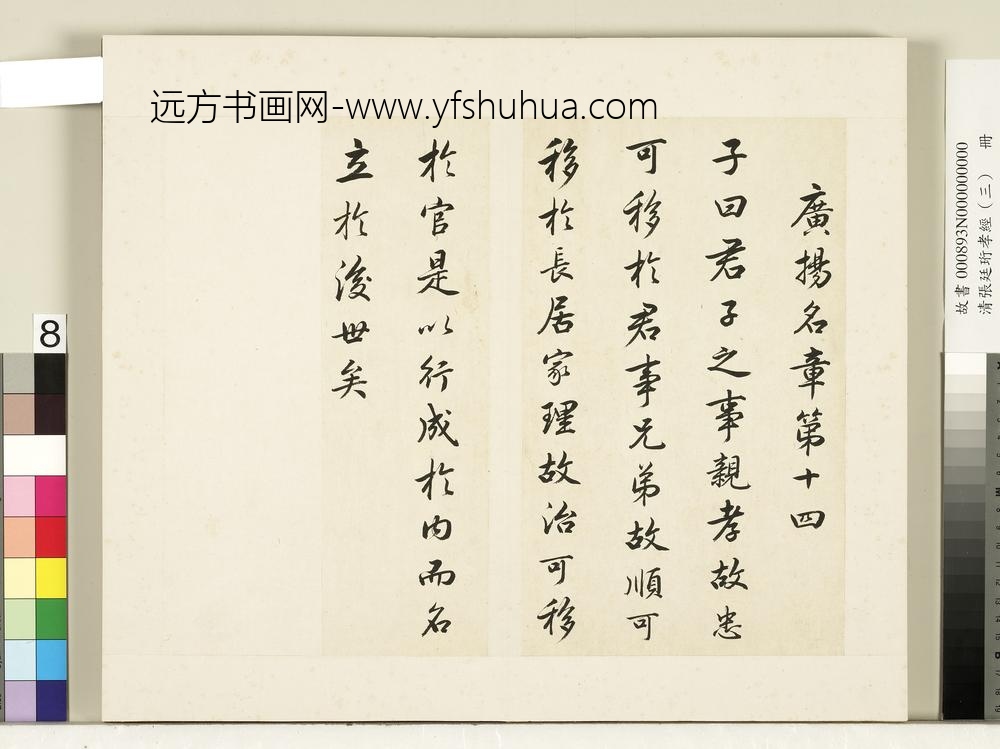 远方书画网-www.yfshuhua.com
廣揚名章第十四
子曰君子之事親孝故忠
可移於君事兄弟故順可
移於長居家理故治可移
於官是以行成於内而名
立於後世矣
故書 000893N000000000
清張廷珩孝經（三） 冊
8